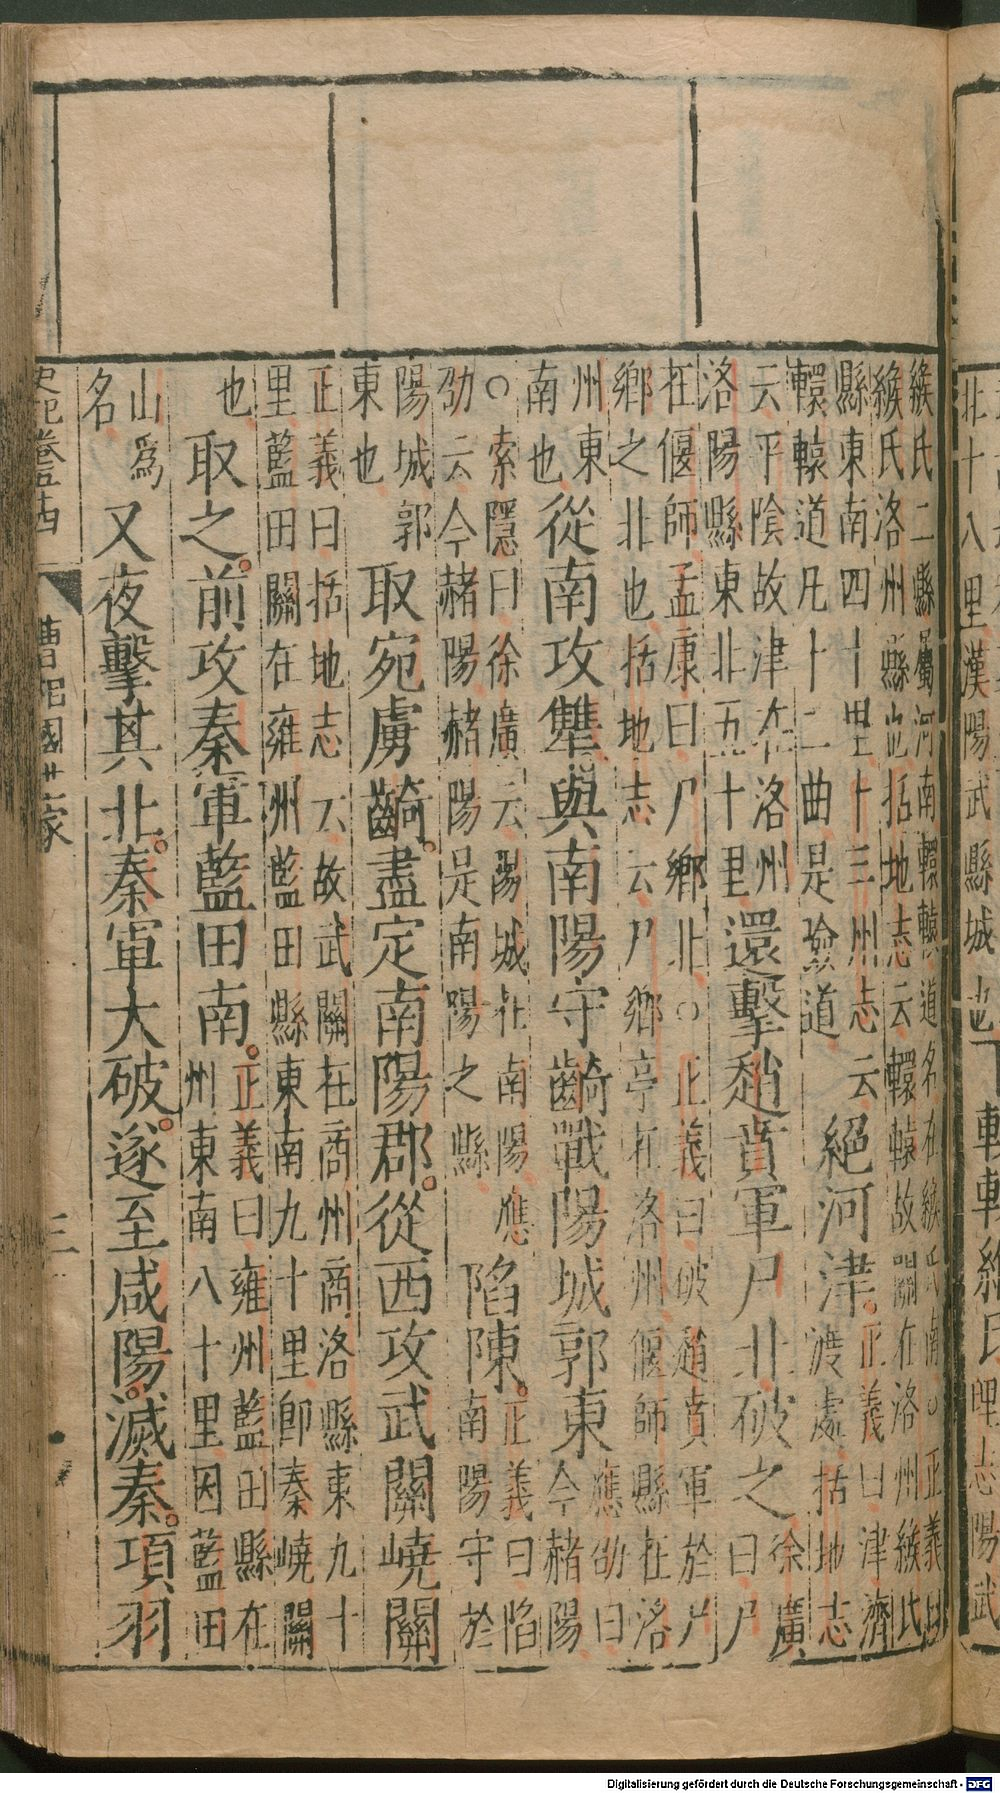 北十八里漢陽武縣城也下轘轅緱氏
緱氏二縣屬河南轘轅道名在緱氏南○正義曰
緱氏洛州縣也括地志云轘轅故關在洛州緱氏
縣東南四十里十三州志云
轘轅道凡十二曲是險道
絕河津
正義曰津濟
渡處括地志
云平陰故津在洛州
洛陽縣東北五十里
還擊趙賁軍尸北破之
徐廣
曰尸
在偃師孟康曰尸鄉北○正義曰破趙賁軍於尸
鄉之北也括地志云尸鄉亭在洛州偃師縣在洛
州東
南也
從南攻犨與南陽守齮戰陽城郭東
應劭曰
今赭陽
○索隱曰徐廣云陽城在南陽應
劭云今赭陽赭陽是南陽之縣
陷陳
正義曰陷
南陽守於
陽城郭
東也
取宛虜齮盡定南陽郡從西攻武關嶢關
正義曰括地志云故武關在商州商洛縣東九十
里藍田關在雍州藍田縣東南九十里即秦嶢關
也
取之前攻秦軍藍田南
正義曰雍州藍田縣在
州東南八十里因藍田
山為
名
又夜擊其北秦軍大破遂至咸陽滅秦項羽
史記卷五十四 曹相國世家 三
Digitalisierung gefördert durch die Deutsche Forschungsgemeinschaft - DFG